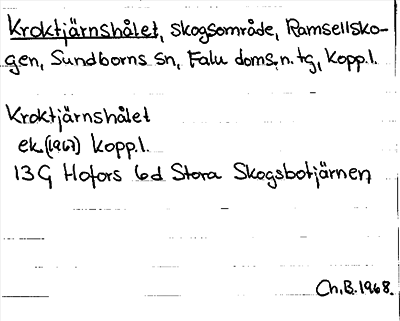 Kroktjärnshålet, skogsområde, Ramsellsko-
gen, Sundborns sn, Falu doms.n. tg, Kopp.l.
Kroktjärnshålet
ek.(1967) Kopp.l.
13G Hofors 6d Stora Skogsbotjärnen
Ch.B.1968.